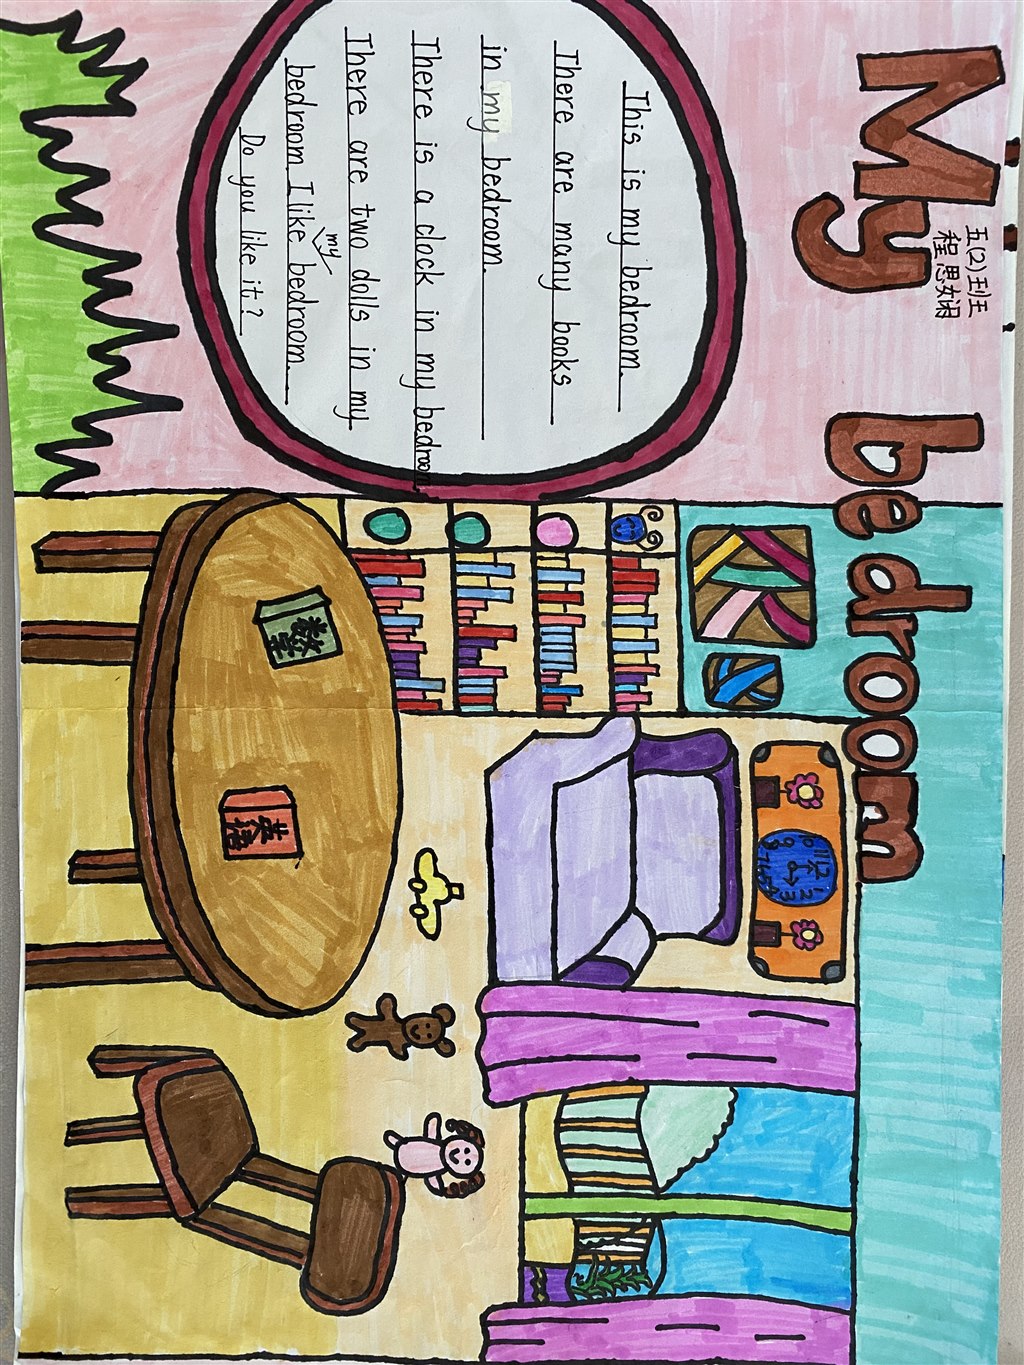 My bedroom
五(2)班
程思娴
This is my bedroom.
There are many books
in my bedroom.
There is a clock in my bedroom.
There are two dolls in my
my
bedroom. I like bedroom.
Do you like it?
数学
英语